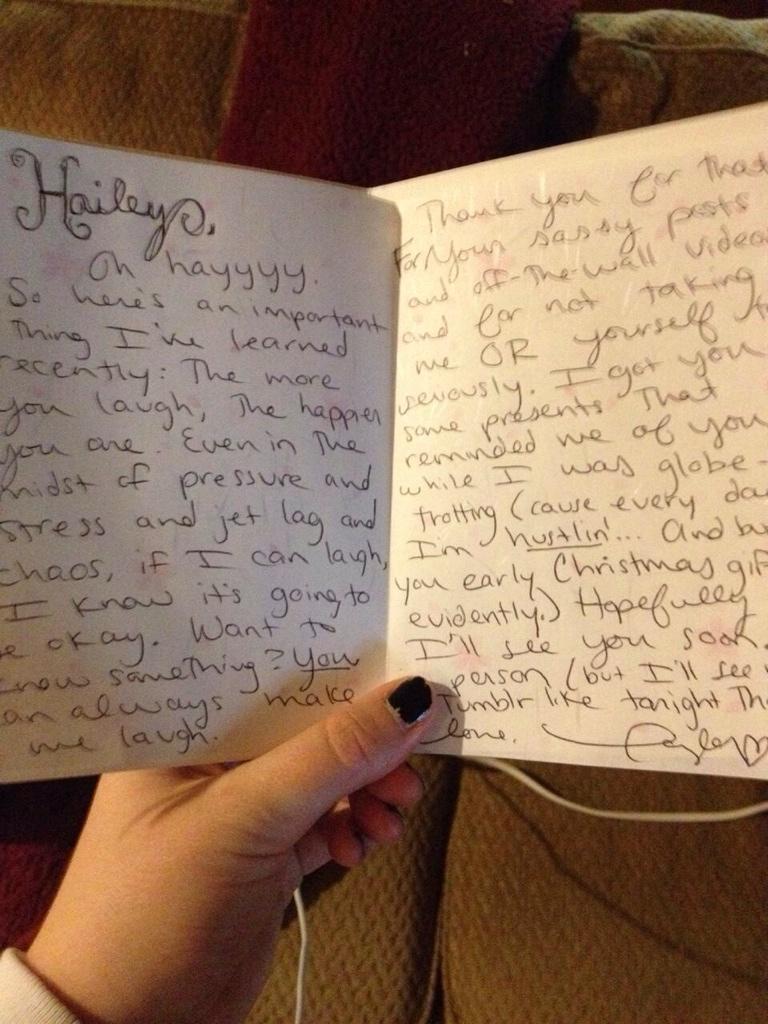 Hailey,
Oh hayyyy.
So here's an important
Thing I've learned
recently: The more
you laugh, The happier
you are. Even in The
midst of pressure and
stress and jet lag and
chaos, if I can laugh,
I know it's going to
be okay. Want to
know something? You
can always make
me laugh.
Thank you for That
For Your sassy posts
and off-The-wall videos
and for not taking
me OR yourself
seriously. I got you
some presents That
reminded me of you
while I was globe-
trotting (cause every day
I'm hustlin'... And
you early Christmas
evidently.) Hopefully
I'll see you soon
person (but I'll see
Tumblr like tonight Tho
Love,